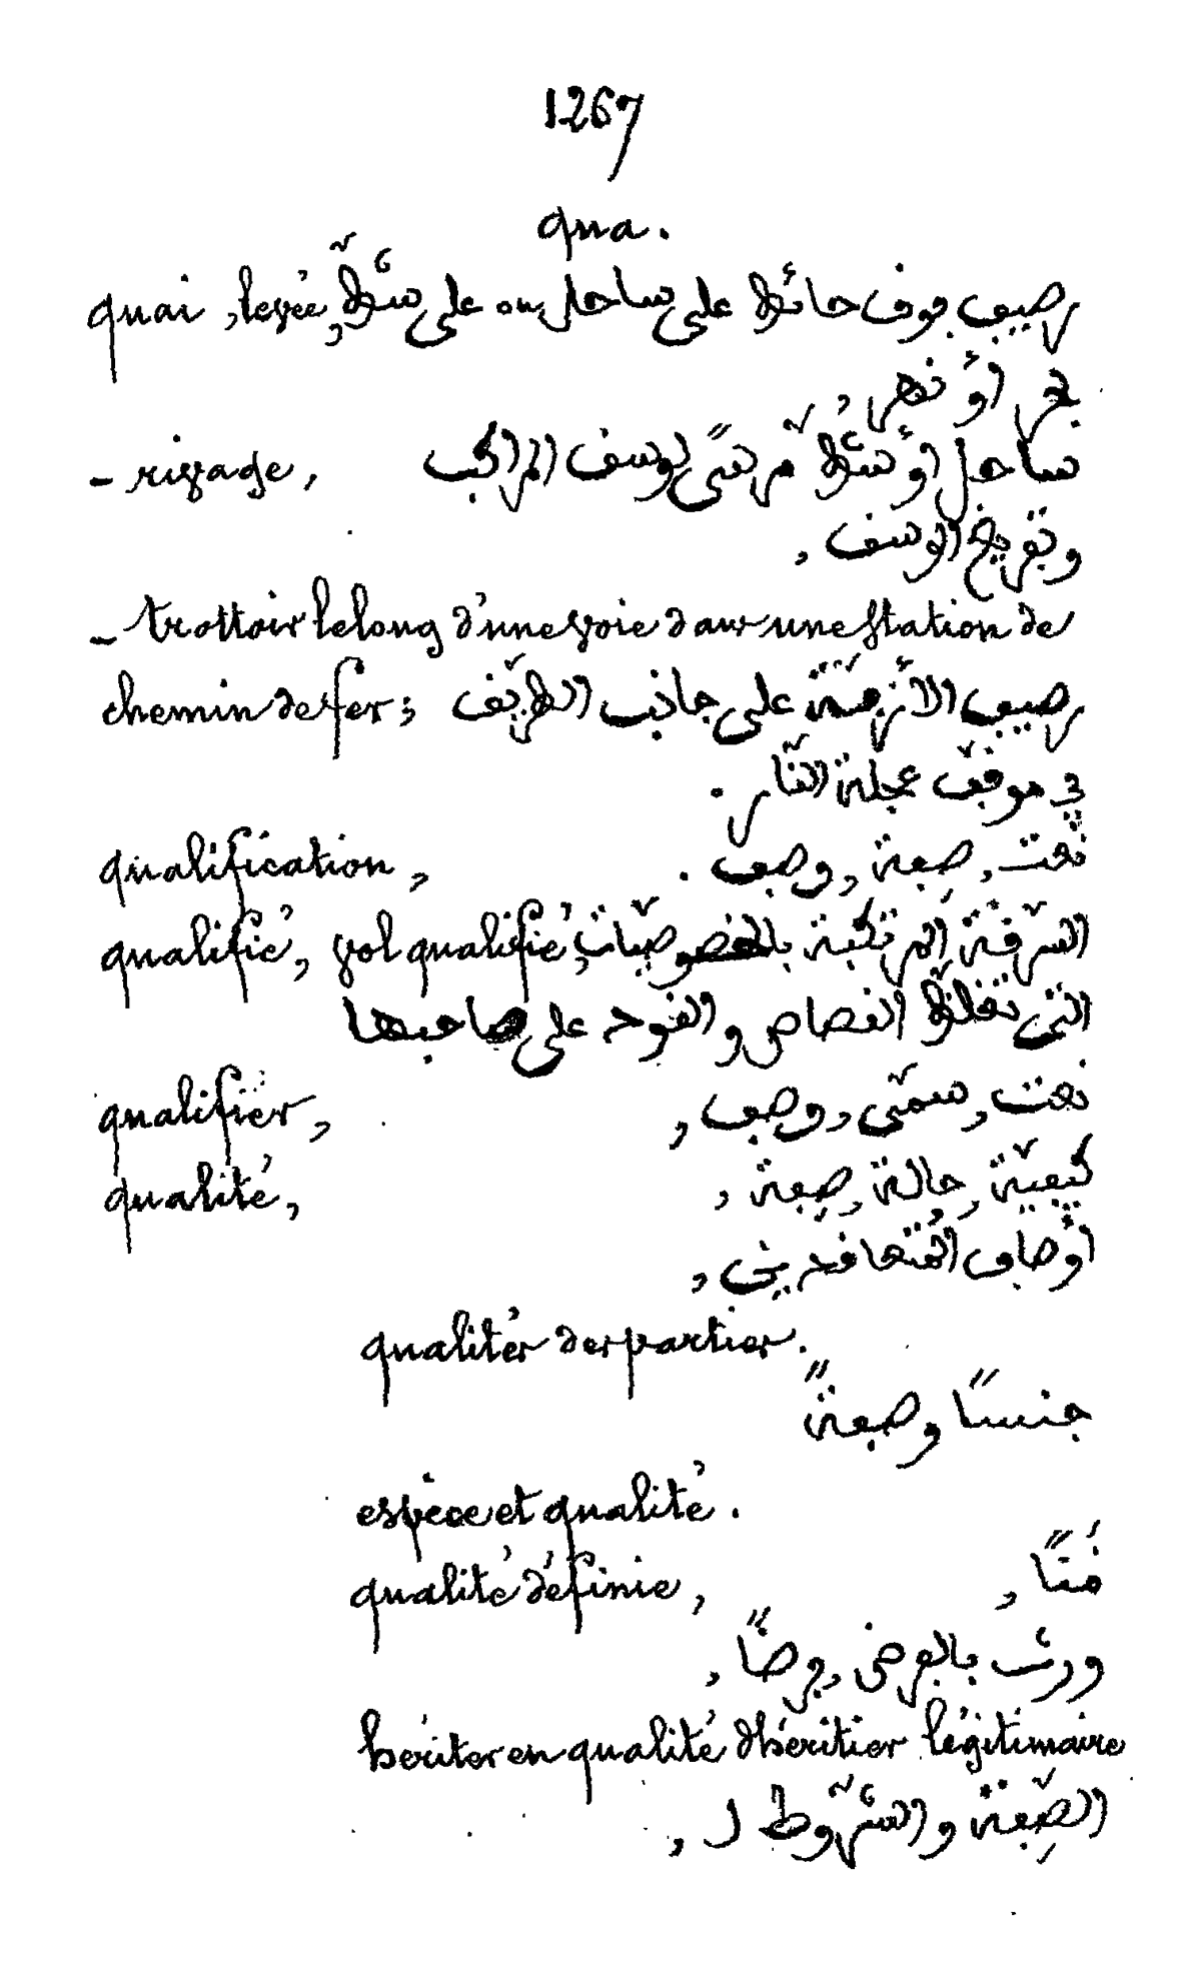 1267
qua.
quai, levée, رصيف فوق حائط على ساحل ou على شطّ
بحر أو نهر,
- rivage, ساحل أو شطّ مرسًى لوسق المراكب
وتفريغ الوسق,
- trottoir le long d'une voie dans une station de
chemin de fer; رصيف الأزقة على جانب الطريق
في موقف عجلة النّار.
qualification, نعت, صِفة, وصف.
qualifié, vol qualifié, السّرقة المرتكبة بالخصوصيّات
التي تغلّظ القصاص والقود على صاحبها
qualifier, نعت, سمّى, وصف,
qualité, كيفيّة, حالة, صِفة,
أوصاف المتعاقدين,
qualités des parties.
جنسًا وصفةً
espèce et qualité.
qualité définie,
ورث بالفرض, فرضًا,
hériter en qualité d'héritier légitimaire
الصِّفة والشّروط ل,